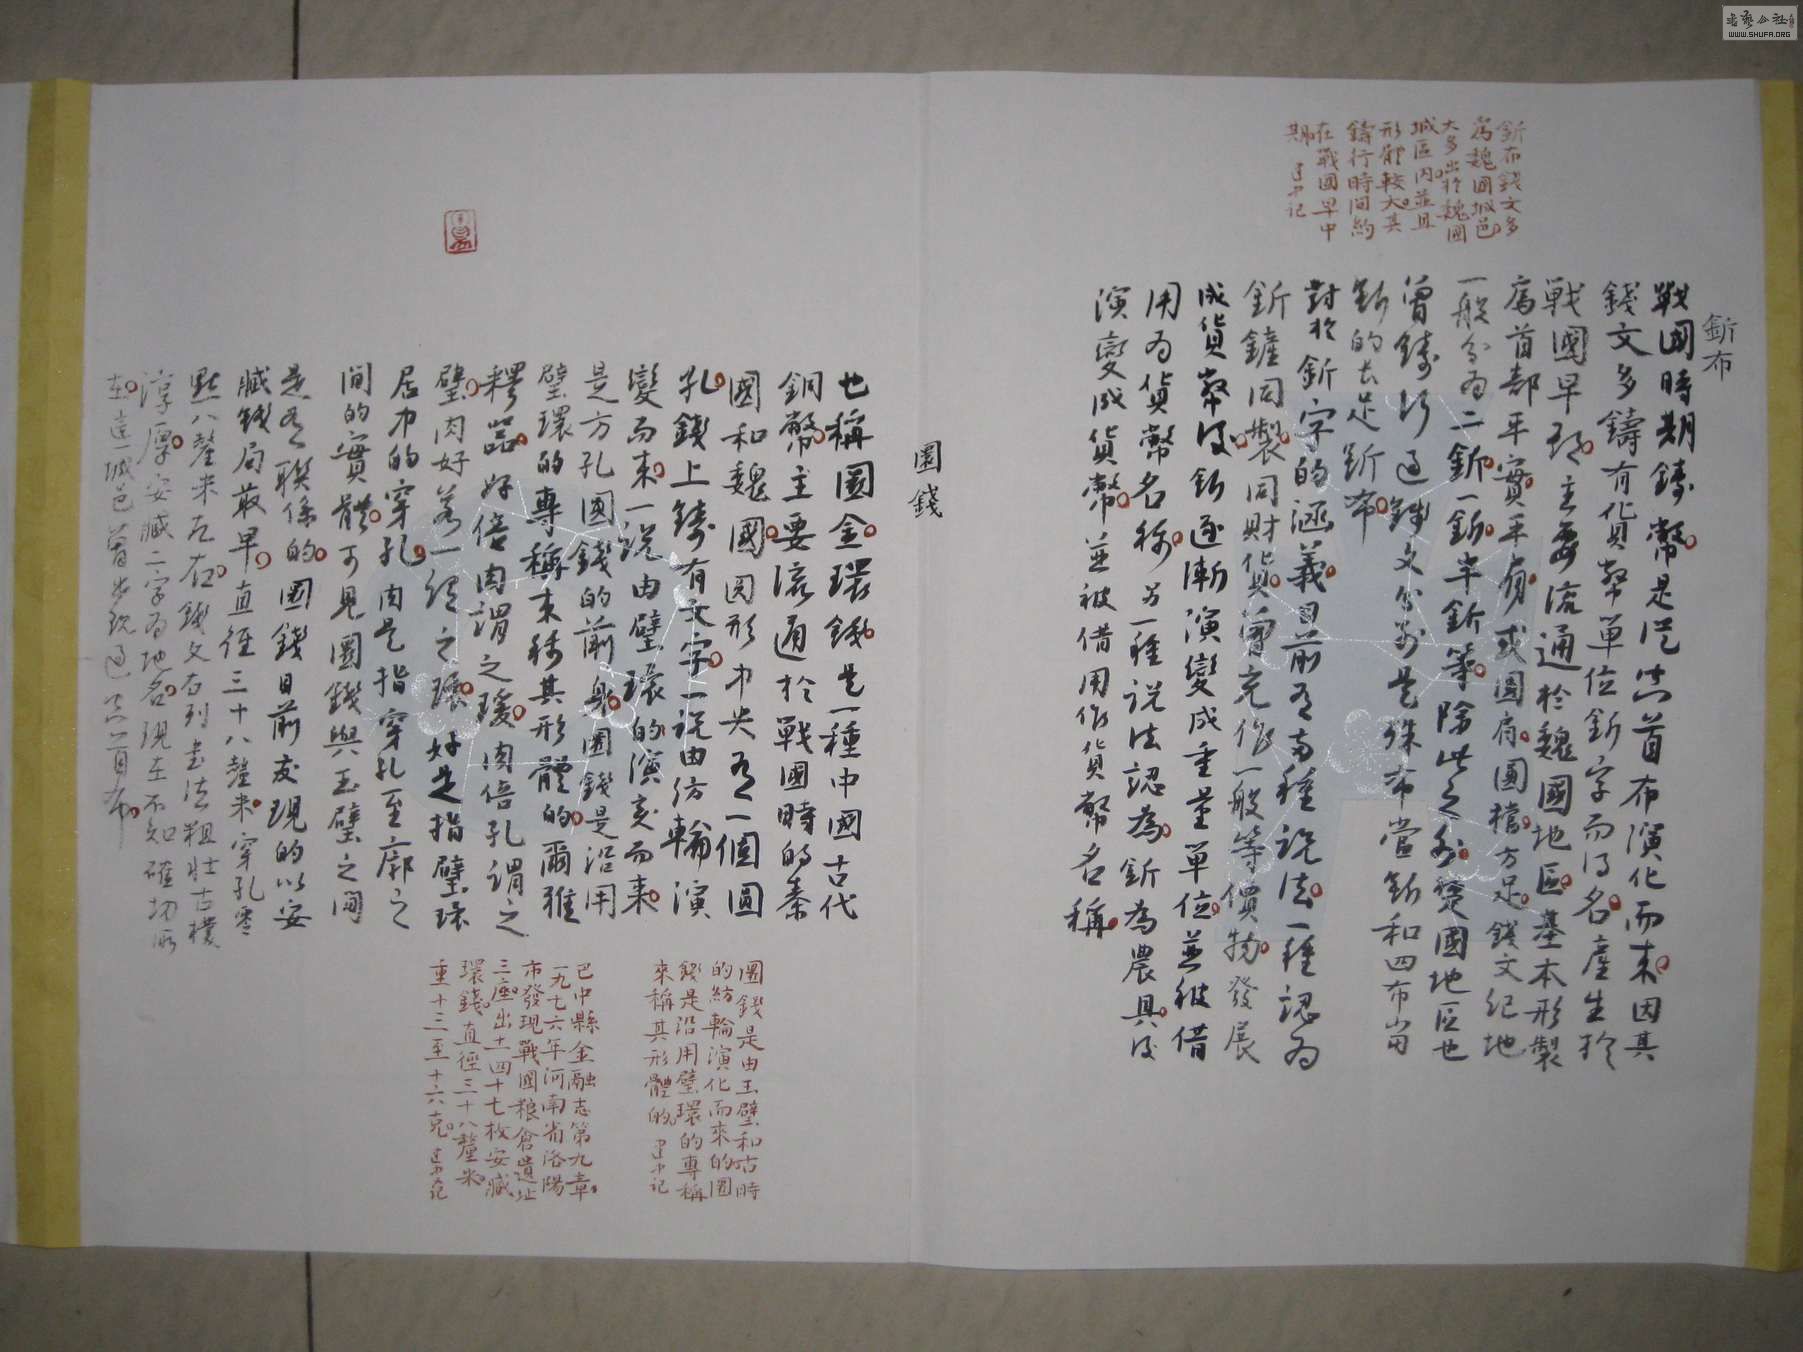 釿布
戰國時期鑄幣是從空首布演化而来因其
錢文多鑄有貨幣單位釿字而得名產生於
戰國早期主要流通於魏國地區基本形製
為首部平實平肩或圓肩圓襠方足錢文紀地
一般分為二釿一釿半釿等除此之外楚國地區也
曾鑄行過錢文分别是殊布當釿和四布當
釿的长足釿布
對於釿字的涵義目前有两種説法一種認为
釿鏟同製同財貨曾充作一般等價物發展
成貨幣後釿逐漸演變成重量單位并被借
用为貨幣名称另一種説法認為釿為農具後
演變成貨幣並被借用作貨幣名稱
釿布錢文多
為魏國城邑
大多出於魏國
城區内並且
形體較大其
鑄行時间約
在戰國早中
期 建中记
圜錢
也稱圜金環錢是一種中國古代
銅幣主要流通於戰國時的秦
國和魏國圓形中央有一個圓
孔錢上鑄有文字一説由纺輪演
變而来一説由璧環的演变而来
是方孔圓錢的前身圜錢是沿用
璧環的專稱来稱其形體的爾雅
釋器好倍肉謂之瑗肉倍孔謂之
璧肉好若一謂之環好是指璧環
居中的穿孔肉是指穿孔至廓之
间的實體可見圜錢與玉璧之间
是有聯係的圜錢目前发現的以安
臧錢局最早直徑三十八釐米穿孔零
點八釐米左右錢文右列書法粗壮古樸
淳厚安臧二字为地名現在不知確切所
在這一城邑曾发現過空首布
圜錢是由玉璧和古時
的紡輪演化而來的圜
錢是沿用璧環的專稱
來稱其形體的 建中记
巴中縣金融志第九章
一九七六年河南省洛陽
市發現戰國粮倉遺址
三座出土四十七枚安臧
環錢直徑三十八釐米
重十三至十六克 建中记
書藝公社
WWW.SHUFA.ORG